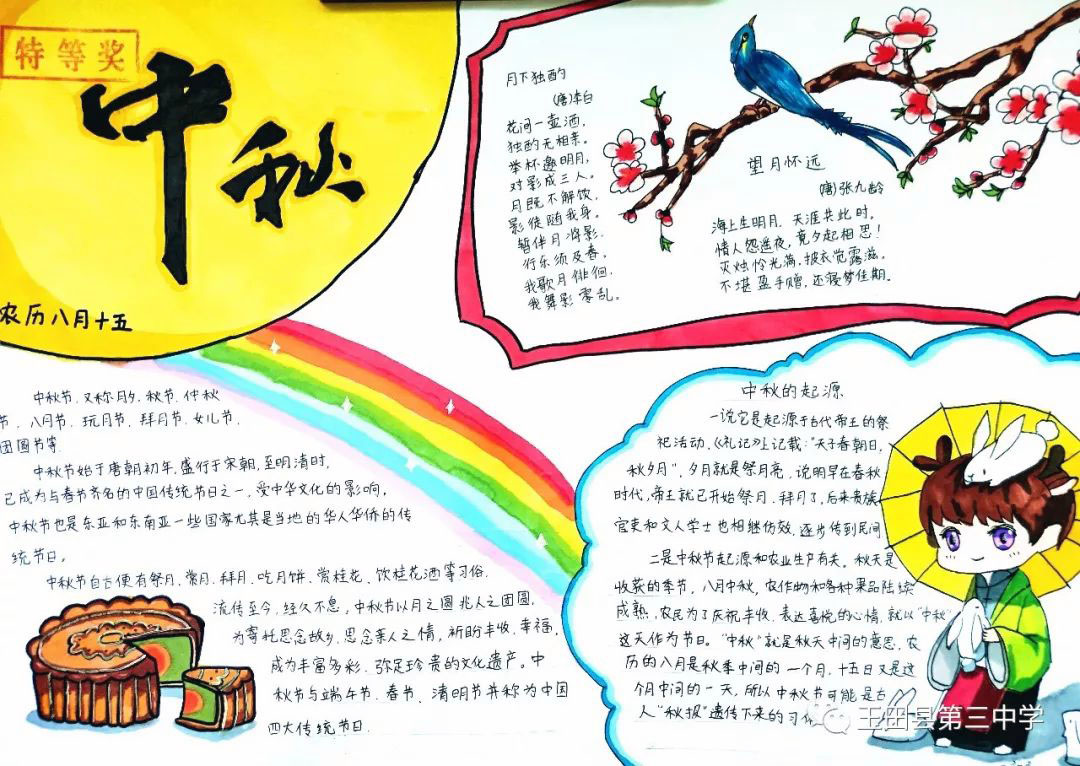 特等奖
中秋
农历八月十五
月下独酌
(唐)李白
花间一壶酒，
独酌无相亲。
举杯邀明月，
对影成三人。
月既不解饮，
影徒随我身。
暂伴月将影，
行乐须及春。
我歌月徘徊，
我舞影零乱。
望月怀远
(唐)张九龄
海上生明月，天涯共此时。
情人怨遥夜，竟夕起相思！
灭烛怜光满，披衣觉露滋。
不堪盈手赠，还寝梦佳期。
中秋节，又称月夕、秋节、仲秋
节、八月节、玩月节、拜月节、女儿节、
团圆节等
中秋节始于唐朝初年，盛行于宋朝，至明清时，
已成为与春节齐名的中国传统节日之一，受中华文化的影响，
中秋节也是东亚和东南亚一些国家尤其是当地的华人华侨的传
统节日。
中秋节自古便有祭月、赏月、拜月、吃月饼、赏桂花、饮桂花酒等习俗，
流传至今，经久不息，中秋节以月之圆兆人之团圆，
为寄托思念故乡，思念亲人之情，祈盼丰收、幸福，
成为丰富多彩、弥足珍贵的文化遗产。中
秋节与端午节、春节、清明节并称为中国
四大传统节日。
中秋的起源
一说它是起源于古代帝王的祭
祀活动，《礼记》上记载："天子春朝日，
秋夕月"，夕月就是祭月亮，说明早在春秋
时代，帝王就已开始祭月、拜月了，后来贵族
官吏和文人学士也相继仿效，逐步传到民间
二是中秋节起源和农业生产有关。秋天是
收获的季节，八月中秋，农作物和各种果品陆续
成熟，农民为了庆祝丰收，表达喜悦的心情，就以"中秋"
这天作为节日。"中秋"就是秋天中间的意思，农
历的八月是秋季中间的一个月，十五日又是这
个月中间的一天，所以中秋节可能是古
人"秋报"遗传下来的习俗
玉田县第三中学